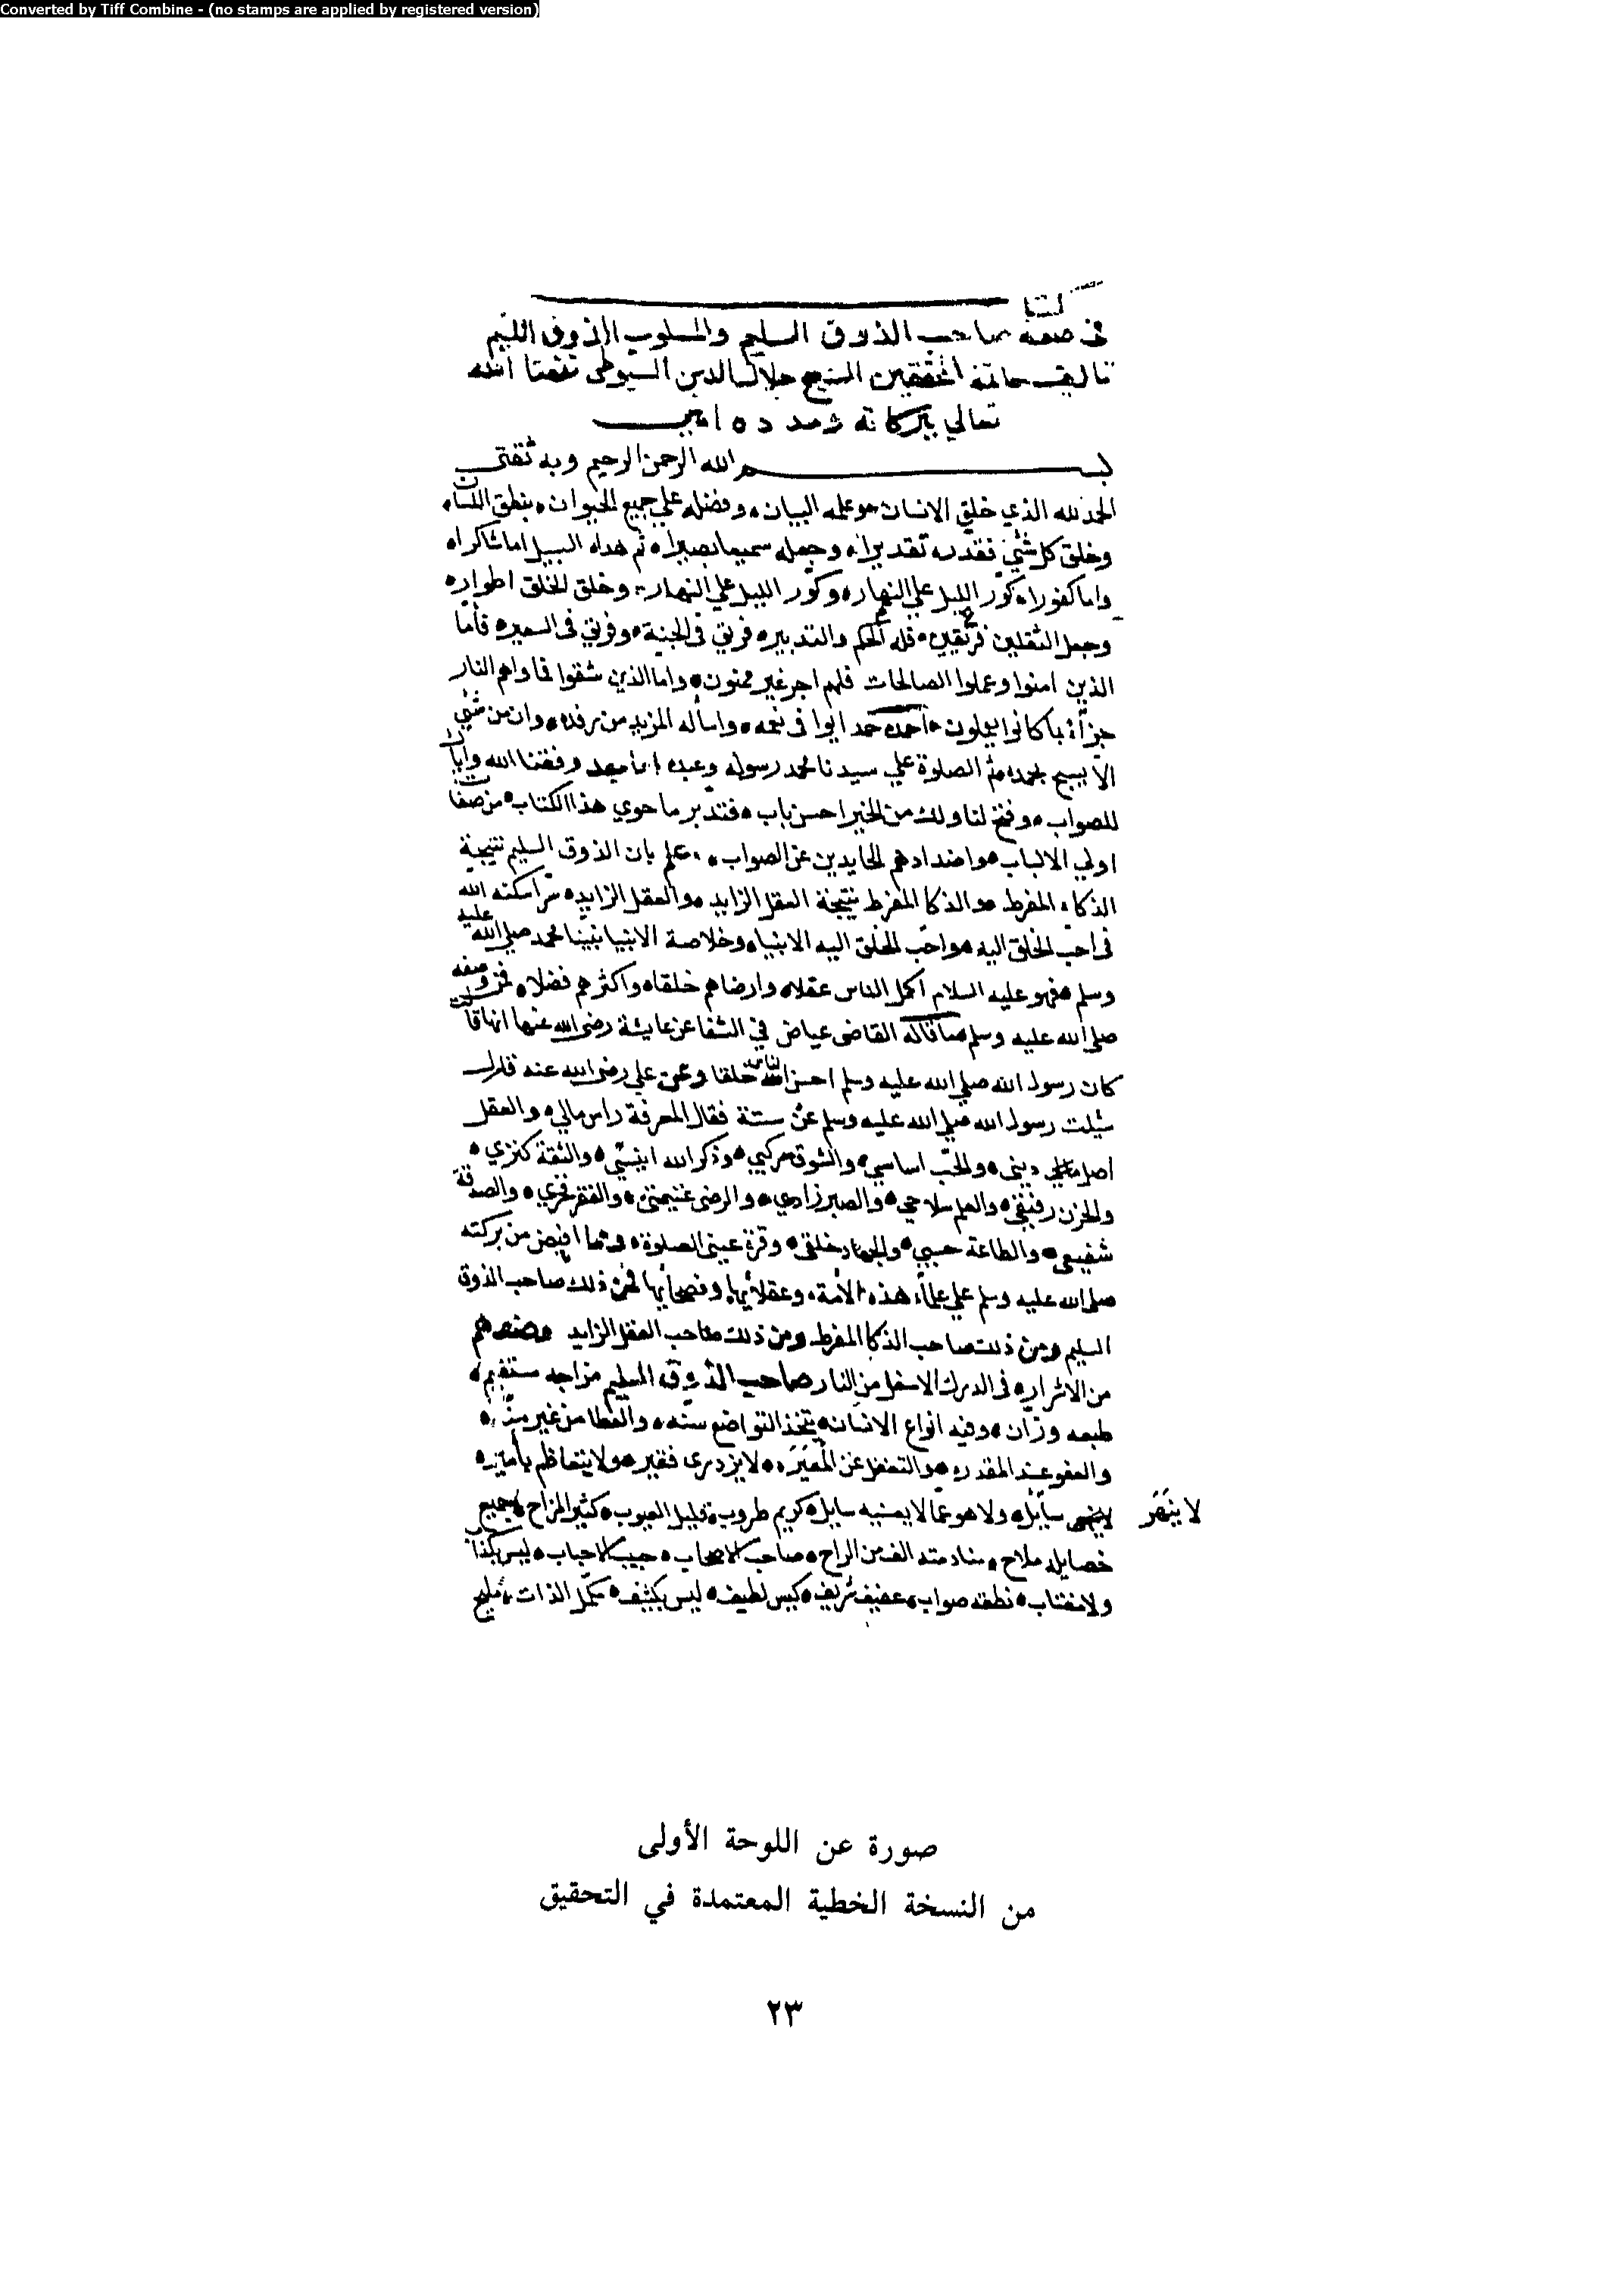 Converted by Tiff Combine - (no stamps are applied by registered version)
كتاب
في صفة صاحب الذوق السليم والمسلوب الذوق اللئيم
تاليف خاتمة المحققين الشيخ جلال الدين السيوطي نفعنا الله
تعالي ببركاته ومدده امين
بسم الله الرحمن الرحيم وبه ثقتي
الحمد لله الذي خلق الانسان وعلمه البيان وفضله علي جميع الحيوان بنطق اللسان
وخلق كل شئ فقدره تقديرا وجعله سميعا بصيرا ثم هداه السبيل اما شاكرا
واما كفورا كور الليل علي النهار وكور الليل علي النهار وخلق الخلق اطوارا
وجعل الثقلين فريقين فله الحكم والتدبير فريق في الجنة وفريق في السعير فأما
الذين امنوا وعملوا الصالحات فلهم اجر غير ممنون واما الذين شقوا فماواهم النار
جزآء بما كانوا يعملون أحمده حمد ايوا في نعمه واسأله المزيد من رفده وان من شئ
الا يسبح بحمده ثم الصلوة علي سيدنا محمد رسوله وعبده اما بعد وفقنا الله واياك
للصواب وفتح لنا ولك من الخير احسن باب فتدبر ما حوي هذا الكتاب من صفات
اولي الالباب واضدادهم الحايدين عن الصواب اعلم بان الذوق السليم نتيجة
الذكاء المفرط والذكا المفرط نتيجة العقل الزايد والعقل الزايد سر اسكنه الله
في احب الخلق اليه واحب الخلق اليه الانبياء وخلاصة الانبيا نبينا محمد صلي الله عليه
وسلم فهو عليه السلام اكمل الناس عقلا وارضاهم خلقا واكثرهم فضلا فمن وصفه
صلي الله عليه وسلم ما قاله القاضي عياض في الشفا عن عايشة رضي الله عنها انها قالت
كان رسول الله صلي الله عليه وسلم احسن الناس خلقا وعن علي رضي الله عنه قال
سئلت رسول الله صلي الله عليه وسلم عن سنته فقال المعرفة راس مالي والعقل
اصل ديني والحب اساسي والشوق مركبي وذكر الله انيسي والثقة كنزي
والحزن رفيقي والعلم سلاحي والصبر زادي والرضي غنيمتي والفقر فخري والصدقة
شفيعي والطاعة حسبي والجهاد خلقي وقرة عيني الصلوة ومما افيض من بركته
صلي الله عليه وسلم علي علمآء هذه الأمة وعقلائها وفصحائها فمن ذلك صاحب الذوق
السليم ومن ذلك صاحب الذكا المفرط ومن ذلك صاحب العقل الزايد وضدهم
من الاشرار في الدرك الاسفل من النار صاحب الذوق السليم مزاجه مستقيم
طبعه وزان وفيه انواع الانسانه يتخذ التواضع سنه والعطا من غير منه
والعفو عند المقدره والتغفل عن المعيره لا يزدري فقير ولا يتعاظم بأمير
سآئل ولا هو عما لا يعنيه سايل كريم طروب قليل العيوب كثير المزاح جميع
لا ينهر
خصايله ملاح منادمته الف من الراح صاحب الاصحاب حبيب الاحباب ليس بكذاب
ولا مغتاب نطقه صواب عفيف شريف كيس لطيف ليس بكثيف مكمل الذات مليح
صورة عن اللوحة الأولى
من النسخة الخطية المعتمدة في التحقيق
٢٣